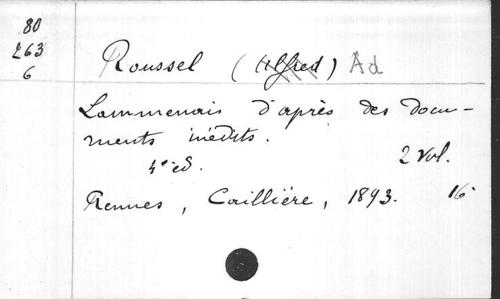 80
263
6
Roussel (Alfred) Ad
Lammenais d'après des docu-
ments inédits.
4e ed. 2 vol.
Rennes, Caillière, 1893. 16